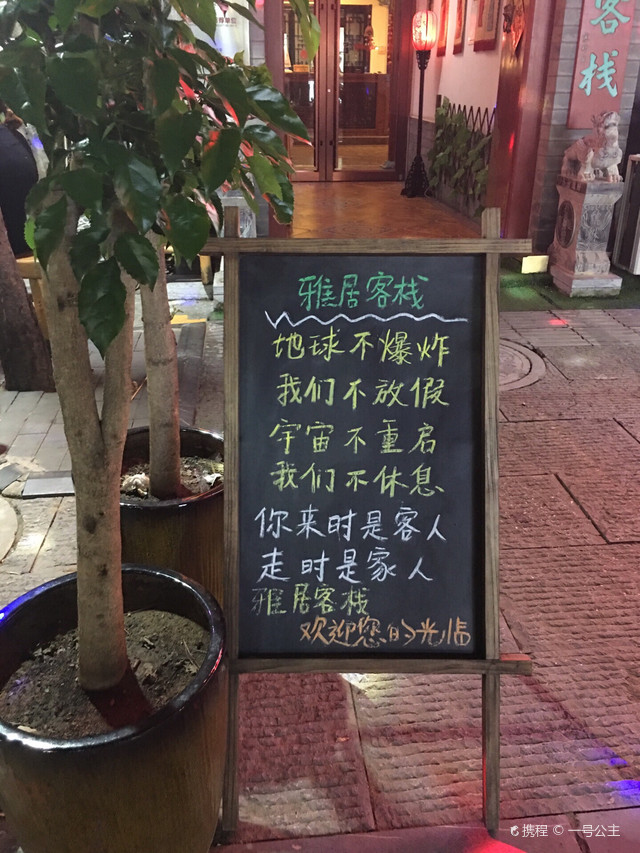 客栈
雅居客栈
地球不爆炸
我们不放假
宇宙不重启
我们不休息
你来时是客人
走时是家人
雅居客栈
欢迎您的光临
携程 © 一号公主